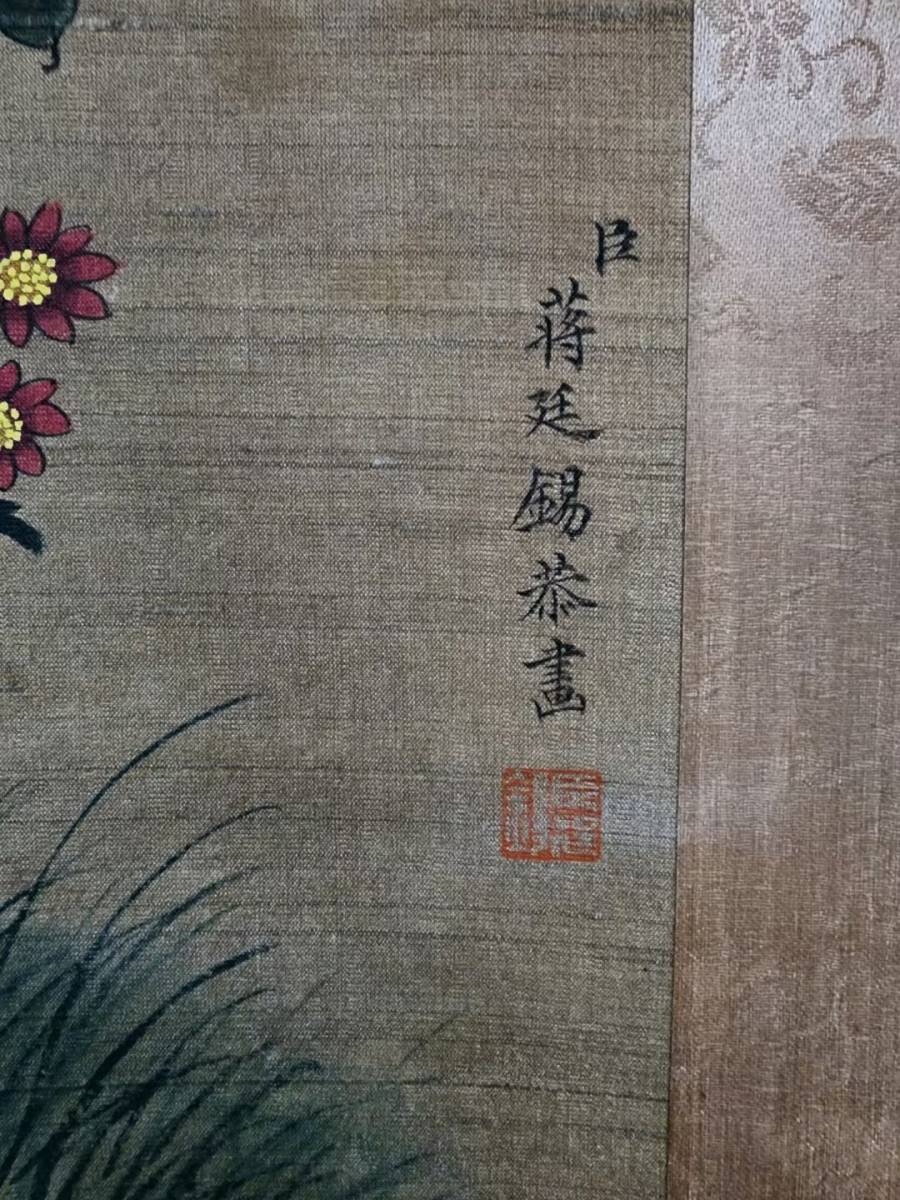 臣蔣廷錫恭畫